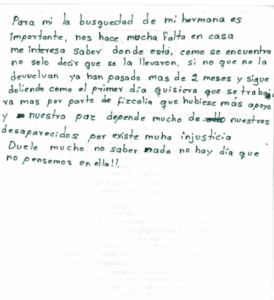 Para mi la busquedad de mi hermana es
Importante, nos hace mucha falta en casa
me interesa saber donde está, como se encuentra
no solo decir que se la llevaron, si no que no la
devuelvan ya han pasado mas de 2 meses y sigue
doliendo como el primer día quisiera que se trabaja
ra mas por parte de fizcalia que hubiese más apoyo
y nuestra paz depende mucho de nuestros
desaparecidos por existe muha injusticia
Duele mucho no saber nada no hay día que
no pensemos en ella!!.